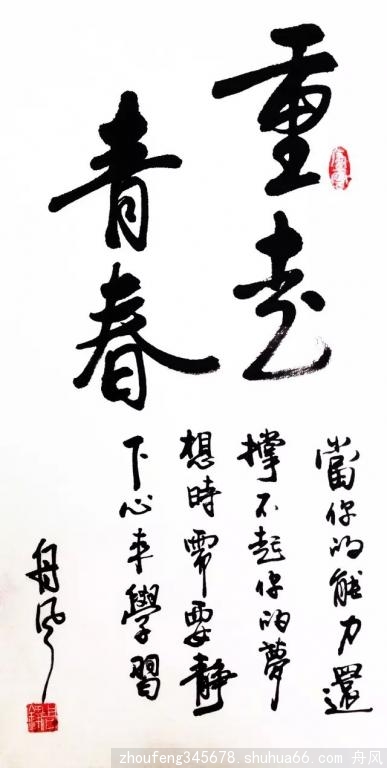 重走
青春
當你的能力還
撑不起你的夢
想時需要靜
下心来學習
舟风
zhoufeng345678.shuhua66.com 舟风